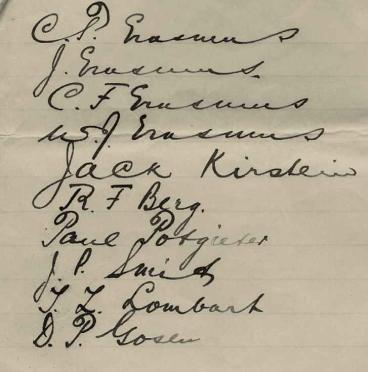 C. P. Erasmus
J. Erasmus.
C. F Erasmus
W J Erasmus
Jack Kirstein
R. F Berg.
Paul Potgieter
J. P. Smit
T. Z. Lombart
D. P. Gosen